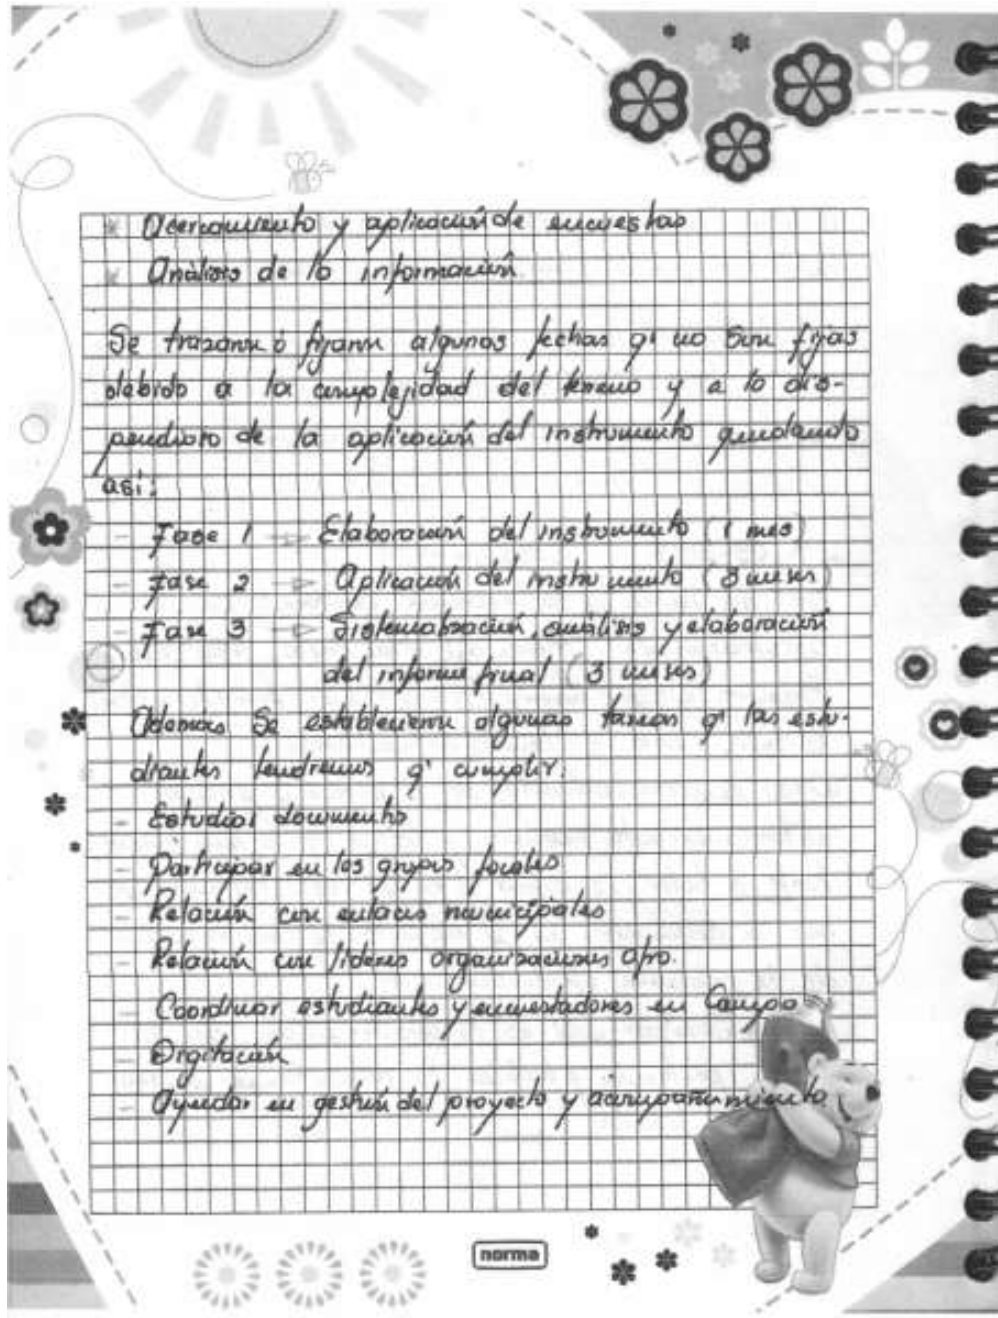 * Acercamiento y aplicación de encuestas
* Análisis de la información.
Se trazaron ó fijaron algunas fechas q' no son fijas
debido a la complejidad del terreno y a lo dis-
pendioso de la aplicación del instrumento quedando
asi:
- Fase 1 → Elaboración del instrumento (1 mes)
- Fase 2 → Aplicación del instrumento (3 meses)
- Fase 3 → Sistematización, análisis y elaboración
del informe final (3 meses)
Además se establecieron algunas tareas q' las estu-
diantes tendremos q' cumplir:
- Estudiar documento
- Participar en los grupos focales
- Relación con enlaces municipales
- Relación con líderes organizaciones afro.
- Coordinar estudiantes y encuestadores en Campo
- Digitación
- Ayudar en gestión del proyecto y acompañamiento
norma